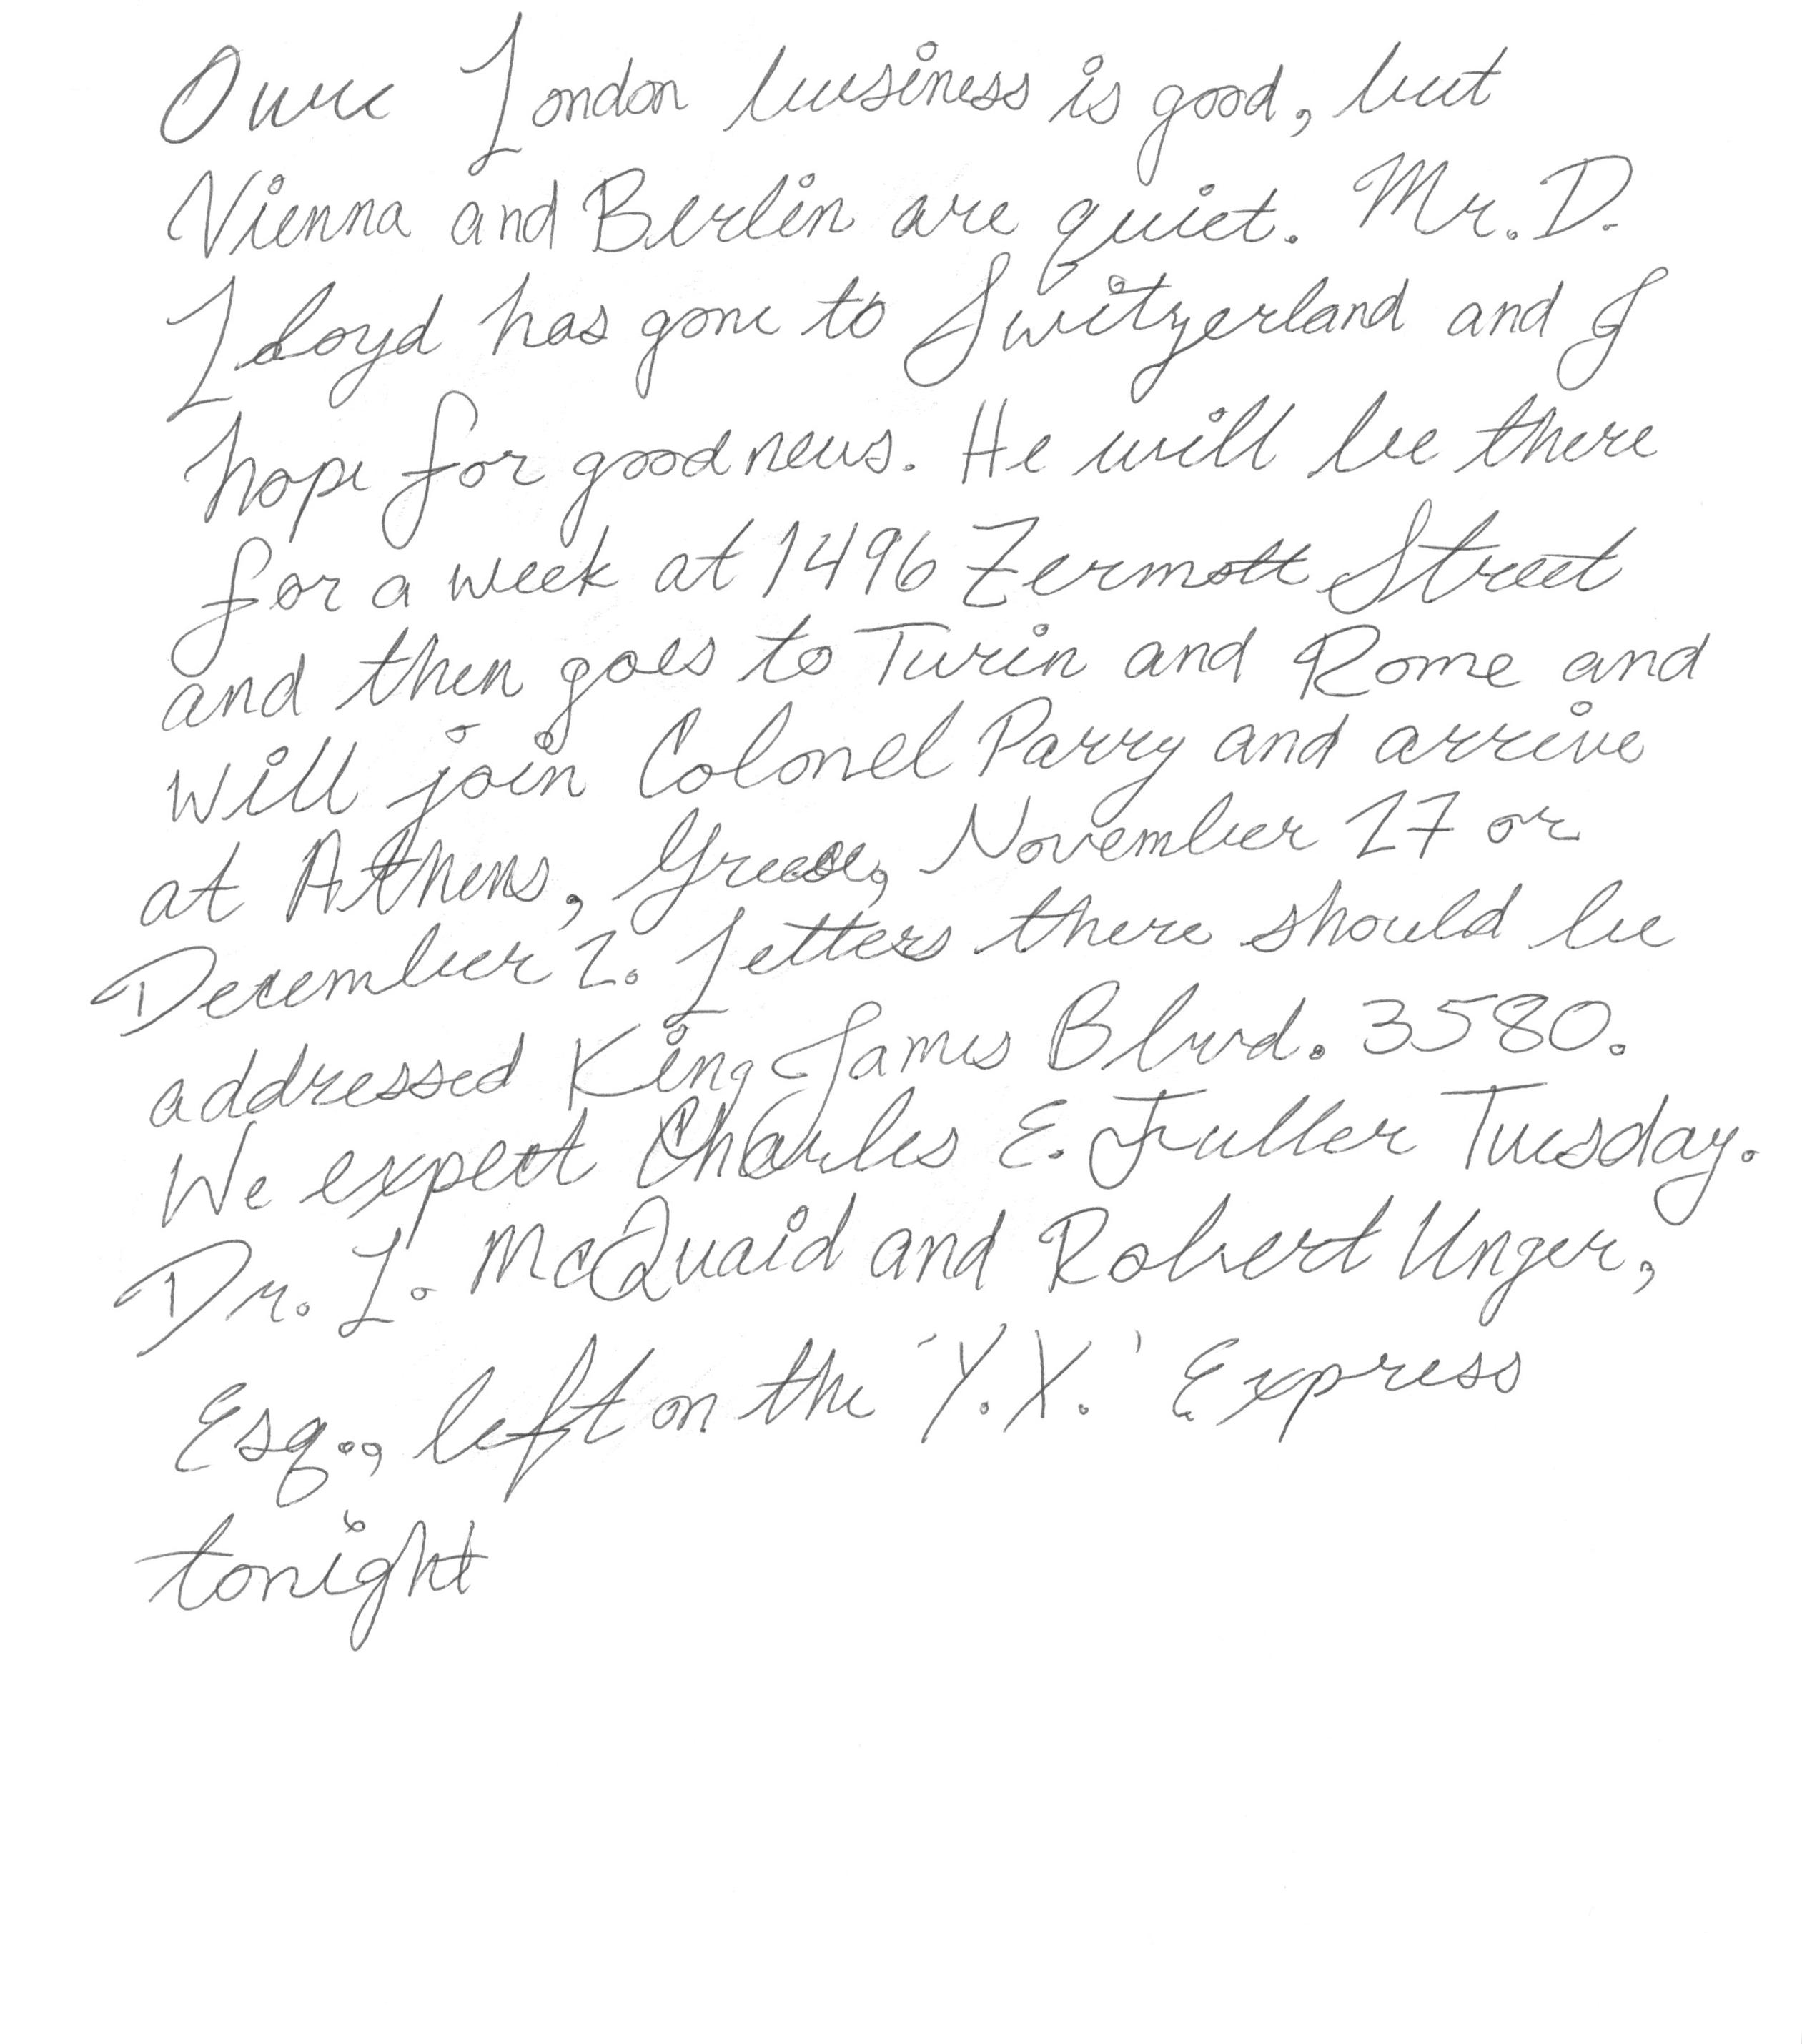 Our London business is good, but
Vienna and Berlin are quiet. Mr. D.
Lloyd has gone to Switzerland and I
hope for good news. He will be there
for a week at 1496 Zermott Street
and then goes to Turin and Rome and
will join Colonel Parry and arrive
at Athens, Greece, November 27 or
December 2. Letters there should be
addressed King James Blvd. 3580.
We expect Charles E. Fuller Tuesday.
Dr. L. McQuaid and Robert Unger,
Esq., left on the 'Y.X.' Express
tonight